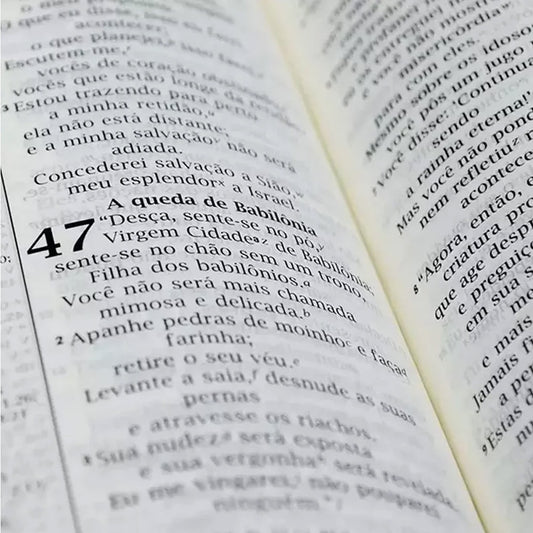 que eu disse, isso
acontecer;
o que planejei, isso farei.
Escutem-me,
vocês de coração obstinado,
vocês que estão longe da retidão.
³ Estou trazendo para perto
a minha retidão,ᵘ
ela não está distante;
e a minha salvaçãoᵛ não será
adiada.
Concederei salvação a Sião,ʷ
meu esplendorˣ a Israel.
A queda de Babilônia
47 “Desça, sente-se no pó,ʸ
Virgem Cidadeᵃᶻ de Babilônia;
sente-se no chão sem um trono,
Filha dos babilônios.ᵃ
Você não será mais chamada
mimosa e delicada.ᵇ
² Apanhe pedras de moinhoᶜ e façaᵈ
farinha;
retire o seu véu.ᵉ
Levante a saia,ᶠ desnude as suas
pernas
e atravesse os riachos.
³ Sua nudezᵍ será exposta
e sua vergonhaʰ será revelada.
Eu me vingarei,ⁱ não pouparei
ninguém.”
entreguei
não mostro
misericórdia
com eles.
Mesmo sobre os idoso
você pôs um jugo
⁷ Você disse: ‘Continua
sendo
a rainha eterna!’
Mas você não pond
nem refletiuᶻ
acontece
⁸ “Agora, então,
criatura pro
que age desp
e preguiç
em sua s
e mais
Jamais fi
a pe
⁹ Estas d